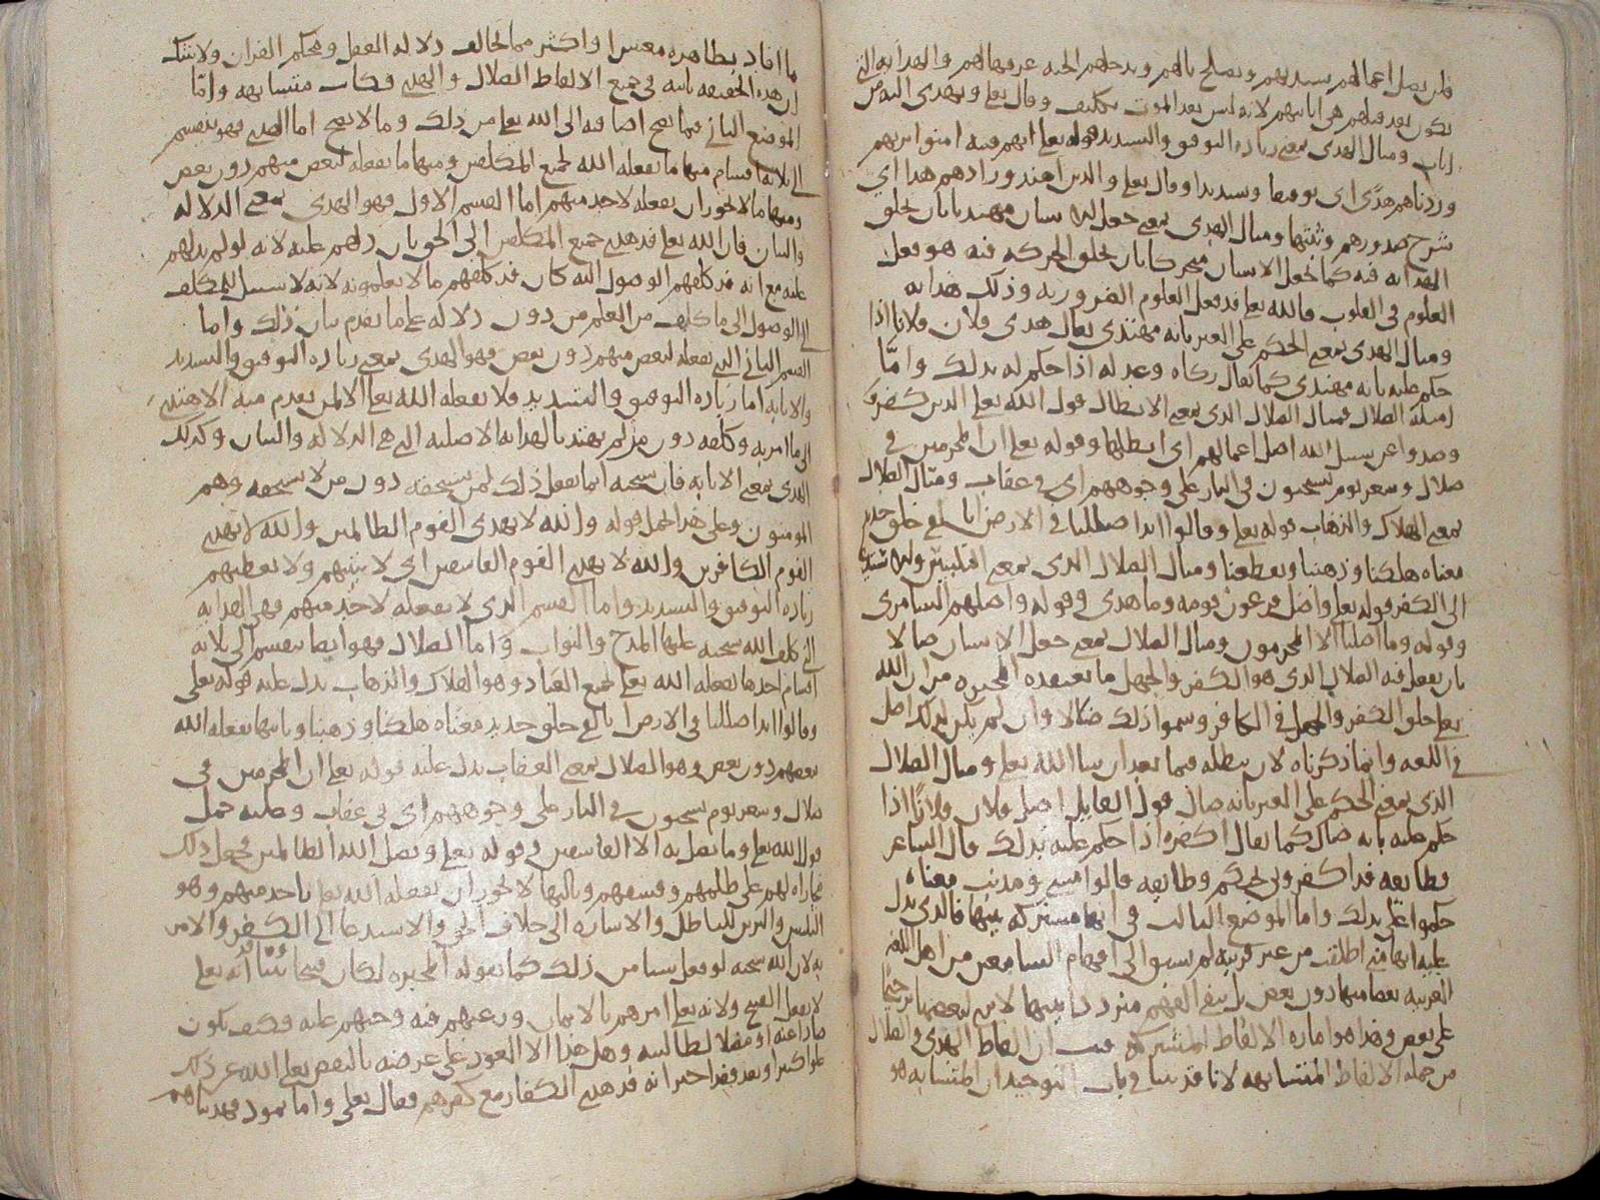 فلن يضل اعمالهم سيهديهم ويصلح بالهم ويدخلهم الجنه عرفها لهم والهدايه التي
تكون بعد قتلهم هي اثابتهم لانه ليس بعد الموت تكليف وقال تعلى ويهدى اليه من
اناب ومثال الهدى بمعنى زياده التوفيق والتسديد قوله تعلى انهم فتيه امنوا بربهم
وزدناهم هدًى اى توفيقا وتسديدا وقال تعلى والذين اهتدوا زادهم هدا اي
شرح صدورهم وثبتها ومثال الهدى بمعنى جعل الانسان مهتديا بان يخلق
الهدايه فيه كما يجعل الانسان متحركا بان يخلق الحركه فيه هو فعل
العلوم في القلوب فالله تعلى قد فعل العلوم الضروريه وذلك هدايه
ومثال الهدى بمعنى الحكم على الغير بانه مهتدى يقال هدى فلان فلانا اذا
حكم عليه بانه مهتدى كما يقال زكاه وعدله اذا حكم له بذلك وامّا
امثله الضلال فمثال الضلال الذى بمعنى الابطال قول الله تعلى الذين كفروا
وصدوا عن سبيل الله اضل اعمالهم اى ابطلها وقوله تعلى ان المجرمين في
ضلال وسعر يوم يسحبون في النار على وجوههم اى في عقاب ومثال الضلال
بمعنى الهلاك والذهاب قوله تعلى وقالوا ائذا ضللنا في الارض ائنا لفى خلق جديد
معناه هلكنا وذهبنا وتقطعنا ومثال الضلال الذى بمعنى التلبيس
الى الكفر قوله تعلى واضل فرعون قومه وما هدى وقوله واضلهم السامرى
وقوله وما اضلنا الا المجرمون ومثال الضلال بمعنى جعل الانسان ضالا
بان يفعل فيه الضلال الذى هو الكفر والجهل ما تعتقده المجبره من ان الله
تعلى خلق الكفر والجهل في الكافر وسموا ذلك ضلالا وان لم يكن لذلك اصل
في اللغه وانما ذكرناه لان نبطله فيما بعد ان شا الله تعلى ومثال الضلال
الذى بمعنى الحكم على الغير بانه ضال قول القايل اضل فلان فلانًا اذا
حكم عليه بانه ضال كما يقال اكفره اذا حكم عليه بذلك قال الشاعر
وطايفه قد اكفرونى بحبكم وطايفه قالوا مسى ومذنب معناه
حكموا على بذلك واما الموضع الثالث في انها مشتركه بينها فالذى يدل
عليه انها متى اطلقت من غير قرينه لم يسبق الى افهام السامعين من اهل اللغه
العربيه بعضا منها دون بعض بل يبقى الفهم مترددا بينها لا
على بعض وهذا هو اماره الالفاظ المشتركه فثبت ان الفاظ الهدى والضلال
من جمله الالفاظ المتشابهه لانا قد بينا في باب التوحيد ان المتشابه هو
ما افاد بظاهره معنيين او اكثر مما يخالف دلاله العقل ومحكم القران ولا شك
ان هذه الحقيقه ثابته في جميع الالفاظ الضلال والهدى فكانت متشابهه وامّا
الموضع الثانى فيما يصح اضافته الى الله تعلى من ذلك وما لا يصح اما الهدى فهو ينقسم
الى ثلاثه اقسام منها ما يفعله الله لجميع المكلفين ومنها ما يفعله لبعض منهم دون بعض
ومنها ما لا يجوز ان يفعله لاحد منهم اما القسم الاول فهو الهدى بمعنى الدلاله
والبيان فان الله تعلى قد هدى جميع المكلفين الى الحق بان دلهم عليه لانه لو لم يدلهم
عليه مع انه قد كلفهم الوصول اليه كان قد كلفهم ما لا يعلمونه لانه لا سبيل للمكلف
الى الوصول الى ما كلف من العلم من دون دلاله على ما تقدم بيان ذلك واما
القسم الثانى الذى يفعله لبعض منهم دون بعض فهو الهدى بمعنى زياده التوفيق والتسديد
والاثابه اما زياده التوفيق والتسديد فلا يفعله الله تعلى الا لمن تقدم منه الاهتدى
الى ما امر به وكلفه دون من لم يهتد بالهدايه الاصليه التى هي الدلاله والبيان وكذلك
الهدى بمعنى الاثابه فان سبحنه انما يفعل ذلك لمن يستحقه دون من لا يستحقه وهم
المومنون وعلى هذا يحمل قوله والله لا يهدى القوم الظالمين والله لا يهدى
القوم الكافرين والله لا يهدى القوم الفاسقين اى لا يثيبهم ولا يعطيهم
زياده التوفيق والتسديد واما القسم الذى لا يفعله لاحد منهم فهى الهدايه
التى كلف الله سبحنه عليها المدح والثواب واما الضلال فهو ايضا ينقسم الى ثلاثه
اقسام احدها يفعله الله تعلى لجميع العباد وهو الهلاك والذهاب يدل عليه قوله تعلى
وقالوا ائذا ضللنا في الارض ائنا لفى خلق جديد معناه هلكنا وذهبنا وثانيها يفعله الله
لبعضهم دون بعض وهو الضلال بمعنى العقاب يدل عليه قوله تعلى ان المجرمين في
ضلال وسعر يوم يسحبون في النار على وجوههم اى في عقاب وعليه حمل
قول الله تعلى وما يضل به الا الفاسقين وقوله تعلى ويضل الله الظالمين فجعل ذلك
مجازاه لهم على ظلمهم وفسقهم وثالثها لا يجوز ان يفعله الله تعلى باحد منهم وهو
التلبيس والتزيين للباطل والاشاره الى خلاف الحق والاستدعا الى الكفر والامر
به لان الله سبحنه لو فعل شيا من ذلك كما تقوله المجبره لكان قبيحا وقد بينّا انه تعلى
لا يفعل القبيح ولانه تعلى امرهم بالايمان ورغبهم فيه وحثهم عليه فكيف يكون
صادا عنه او مضلا لطالبيه وهل هذا الا العود على غرضه بالنقض تعلى الله عن ذلك
علوا كبيرا وبعد فقد اخبر انه قد هدى الكفار مع كفرهم فقال تعلى واما ثمود فهديناهم